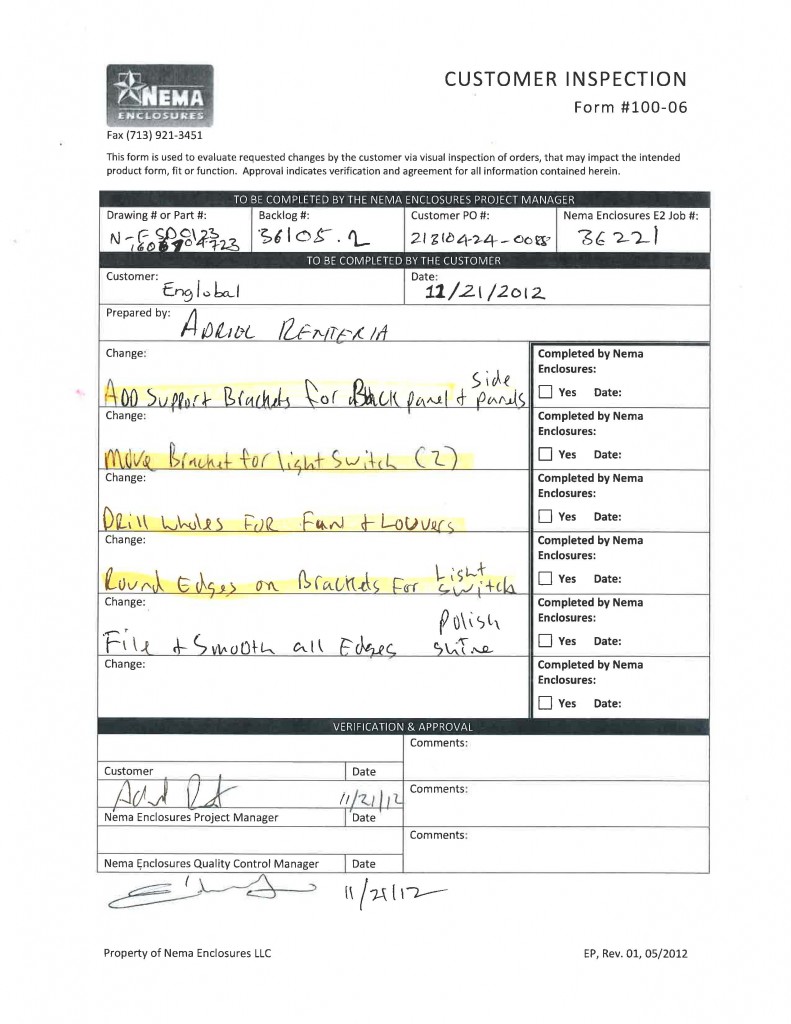 NEMA
ENCLOSURES
CUSTOMER INSPECTION
Form #100-06
Fax (713) 921-3451
This form is used to evaluate requested changes by the customer via visual inspection of orders, that may impact the intended
product form, fit or function. Approval indicates verification and agreement for all information contained herein.
TO BE COMPLETED BY THE NEMA ENCLOSURES PROJECT MANAGER
Drawing # or Part #: Backlog #: Customer PO #: Nema Enclosures E2 Job #:
36105.2 21310424-0088 36221
TO BE COMPLETED BY THE CUSTOMER
Customer: Date:
Englobal 11/21/2012
Prepared by: ADRIEL RENTERIA
Change: Completed by Nema
Enclosures:
ADD Support Brackets for Back panel + side panels
Yes Date:
Change: Completed by Nema
Enclosures:
Move Bracket for light Switch (2)
Yes Date:
Change: Completed by Nema
Enclosures:
Drill wholes FOR Fan + Louvers
Yes Date:
Change: Completed by Nema
Enclosures:
Round Edges on Brackets For Light switch
Yes Date:
Change: Completed by Nema
Enclosures:
File + Smooth all Edges Polish shine
Yes Date:
Change: Completed by Nema
Enclosures:
Yes Date:
VERIFICATION & APPROVAL
Comments:
Customer Date
11/21/12 Comments:
Nema Enclosures Project Manager Date
Comments:
Nema Enclosures Quality Control Manager Date
11/21/12
Property of Nema Enclosures LLC EP, Rev. 01, 05/2012